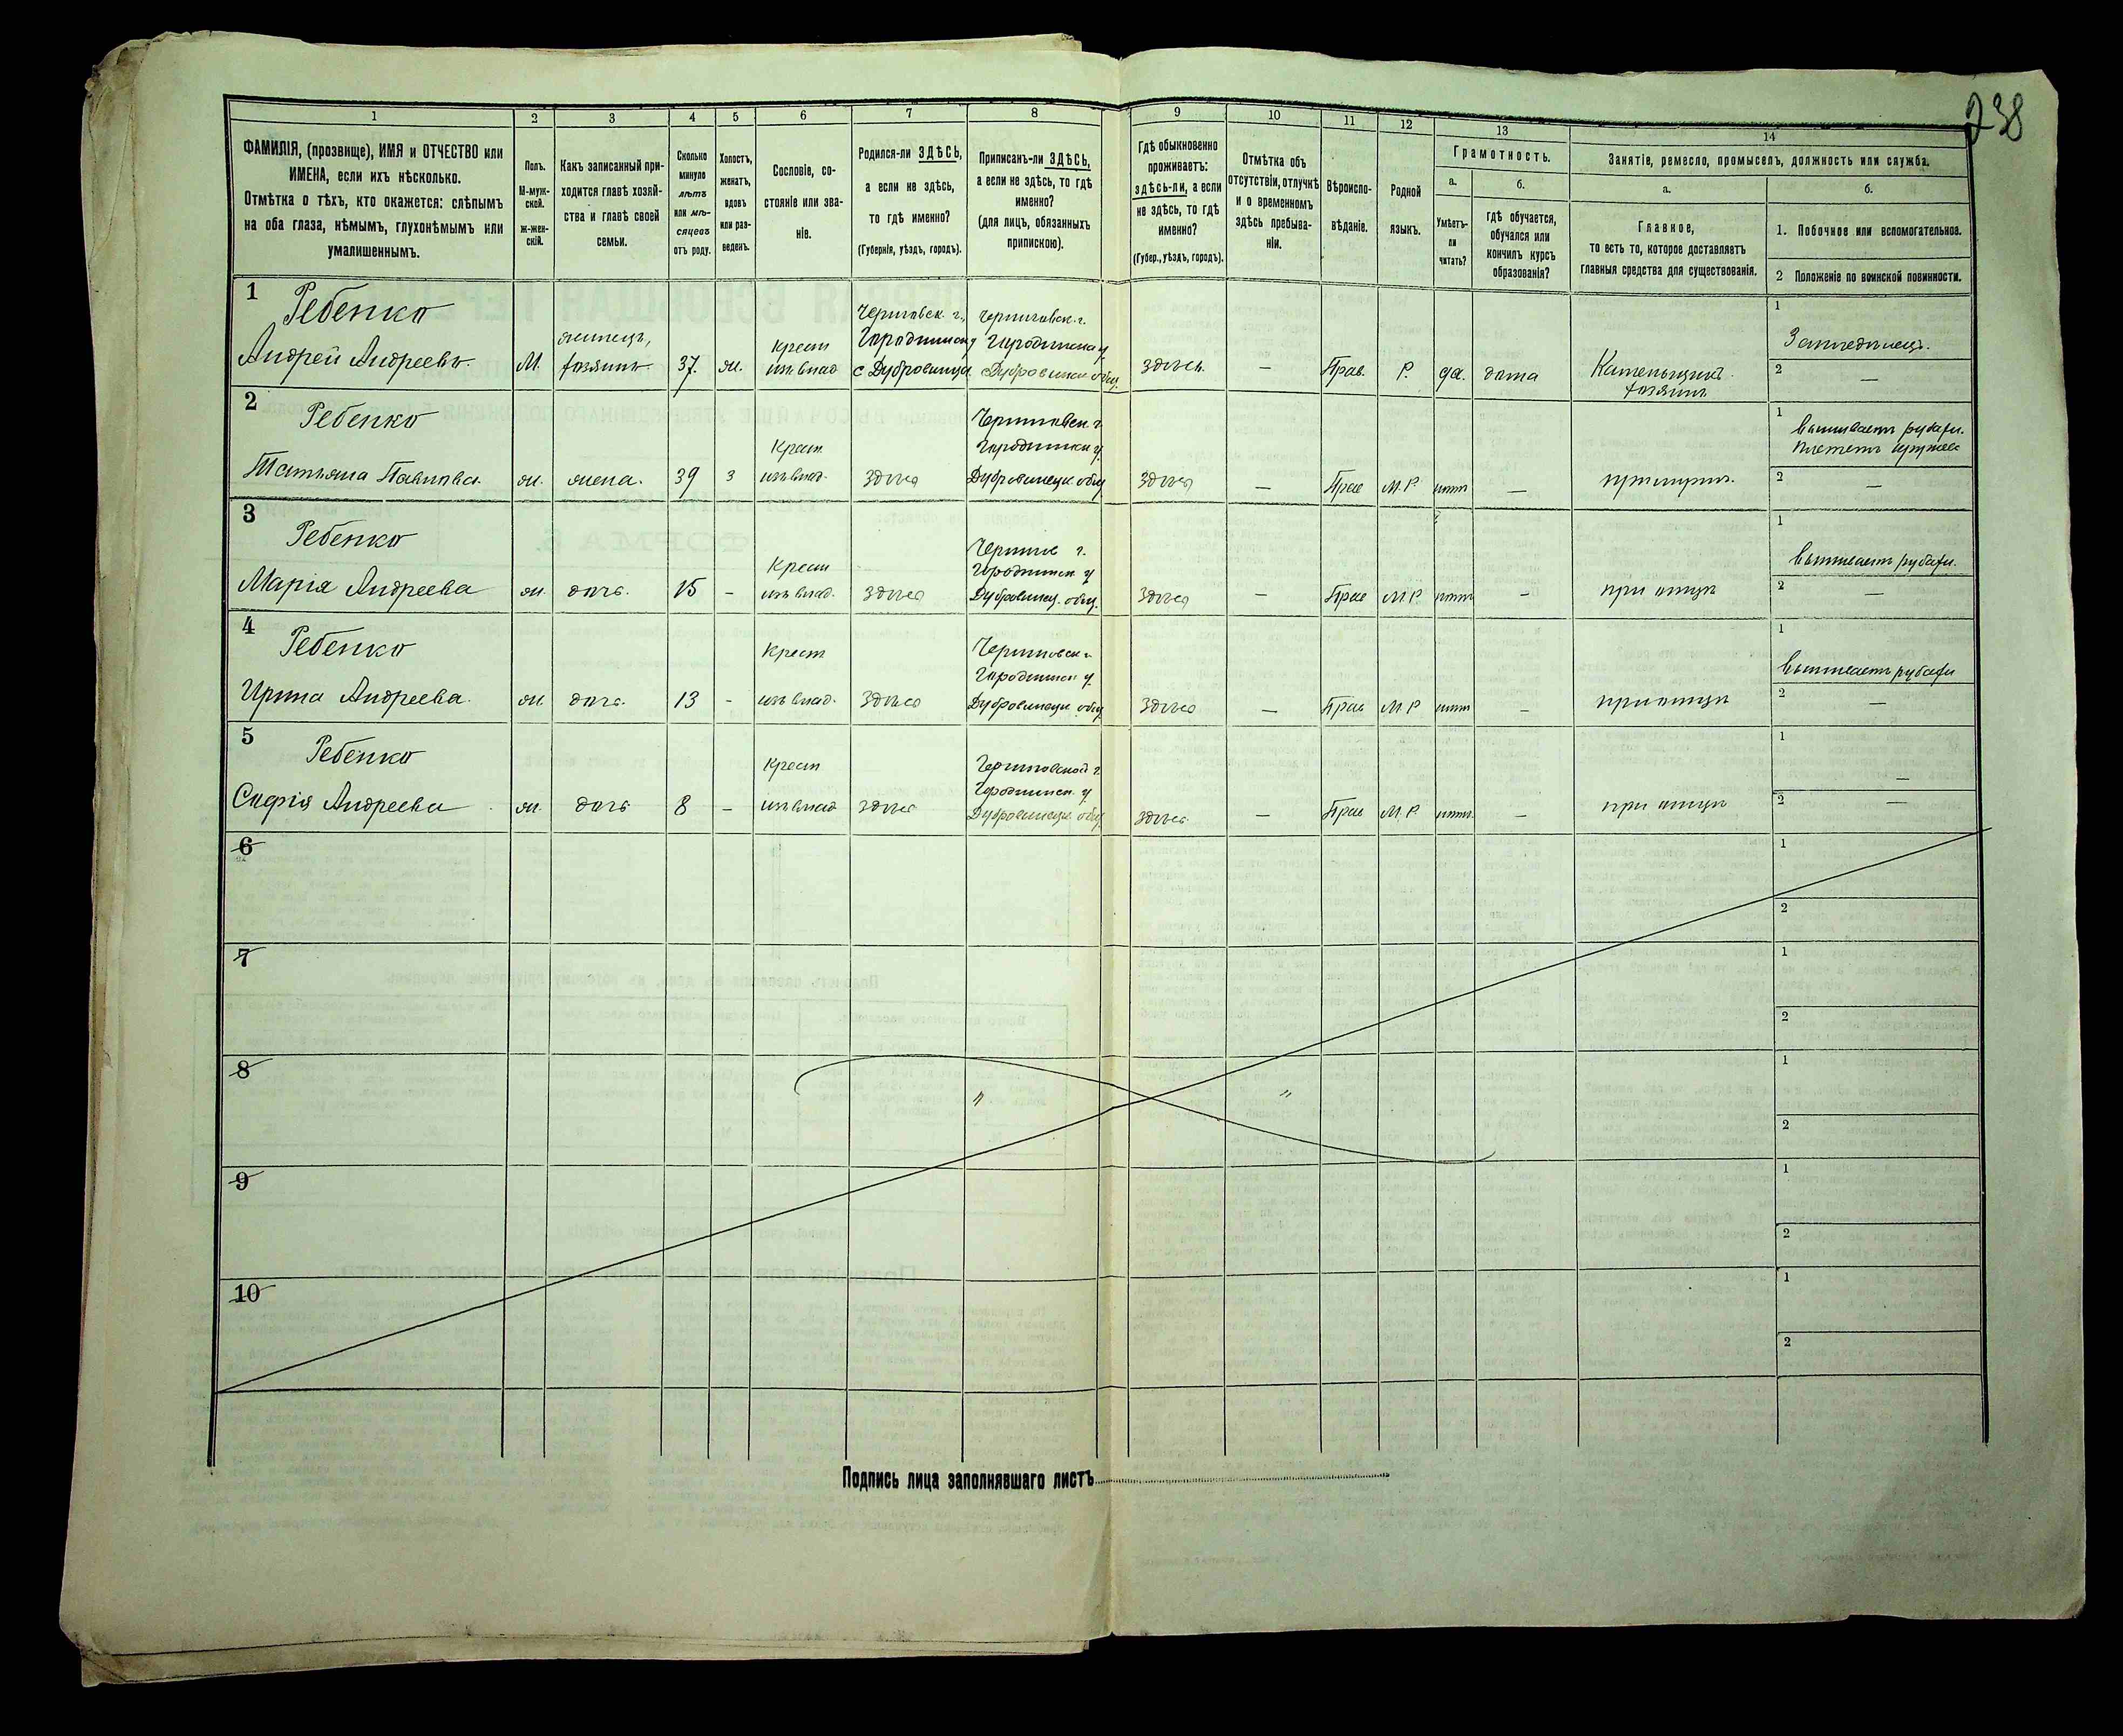 238
1
2
3
4
5
6
7
8
9
10
11
12
13
14
ФАМИЛІЯ, (прозвище), ИМЯ и ОТЧЕСТВО или
ИМЕНА, если ихъ нѣсколько.
Отмѣтка о тѣхъ, кто окажется: слѣпымъ
на оба глаза, нѣмымъ, глухонѣмымъ или
умалишеннымъ.
Полъ.
М-муж-
ской.
ж-жен-
скій.
Какъ записанный при-
ходится главѣ хозяй-
ства и главѣ своей
семьи.
Сколько
минуло
лѣтъ
или мѣ-
сяцевъ
отъ роду.
Холостъ,
женатъ,
вдовъ
или раз-
веденъ.
Сословіе, со-
стояніе или зва-
ніе.
Родился-ли ЗДѢСЬ,
а если не здѣсь,
то гдѣ именно?
(Губернія, уѣздъ, городъ).
Приписанъ-ли ЗДѢСЬ,
а если не здѣсь, то гдѣ
именно?
(для лицъ, обязанныхъ
припискою).
Гдѣ обыкновенно
проживаетъ:
здѣсь-ли, а если
не здѣсь, то гдѣ
именно?
(Губер., уѣздъ, городъ).
Отмѣтка объ
отсутствіи, отлучкѣ
и о временномъ
здѣсь пребыва-
ніи.
Вѣроиспо-
вѣданіе.
Родной
языкъ.
Грамотность.
а.
Умѣетъ-
ли
читать?
б.
гдѣ обучается,
обучался или
кончилъ курсъ
образованія?
Занятіе, ремесло, промыселъ, должность или служба.
а.
Главное,
то есть то, которое доставляетъ
главныя средства для существованія.
б.
1. Побочное или вспомогательное.
2 Положеніе по воинской повинности.
1
Ребенко
Андрей Андреевъ
М.
хозяинъ
37.
ж.
Крест
изъ влад
Черниговск. г.,
Городницк у
с Дубровица
Черниговск. г.
Городницк у.
Дубровицк общ.
здѣсь.
—
Прав.
Р.
да.
дома
хозяинъ
1
2
—
2
Ребенко
Татьяна Павлова.
ж.
жена.
39
з
Крест.
изъ влад.
здѣсь
Черниговск. г.
Городницк у.
Дубровицк общ
здѣсь
—
Прав
М. Р.
нѣтъ
—
1
вышиваетъ рубахи.
Плететъ кружева
2
—
3
Ребенко
Марія Андреева
ж.
дочь.
15
-
Крест
изъ влад.
здѣсь
Чернигов г.
Городницк у
Дубровицк. общ.
здѣсь
—
Прав
М. Р.
нѣтъ
-
при отцѣ
1
вышиваетъ рубахи.
2
—
4
Ребенко
Ирина Андреева.
ж.
дочь.
13
-
Крест
изъ влад.
здѣсь
Черниговск г
Городницк у
Дубровицк общ
здѣсь
—
Прав
М Р
нѣтъ
—
при отцѣ
1
вышиваетъ рубахи
2
—
5
Ребенко
Софія Андреева
ж.
дочь
8
-
Крест
изъ влад
здѣсь
Черниговской г.
Городницк. у
Дубровицк общ.
здѣсь
—
Прав
М. Р.
нѣтъ.
—
при отцѣ
1
—
2
—
6
1
2
7
1
2
8
"
"
1
2
9
1
2
10
1
2
Подпись лица заполнявшаго листъ